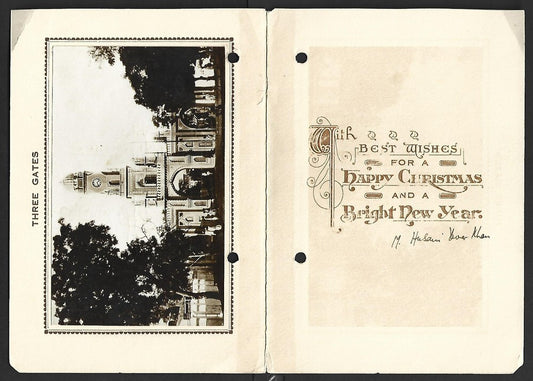 THREE GATES
With
BEST WISHES
FOR A
HAPPY CHRISTMAS
AND A
Bright New Year.
M. Khan